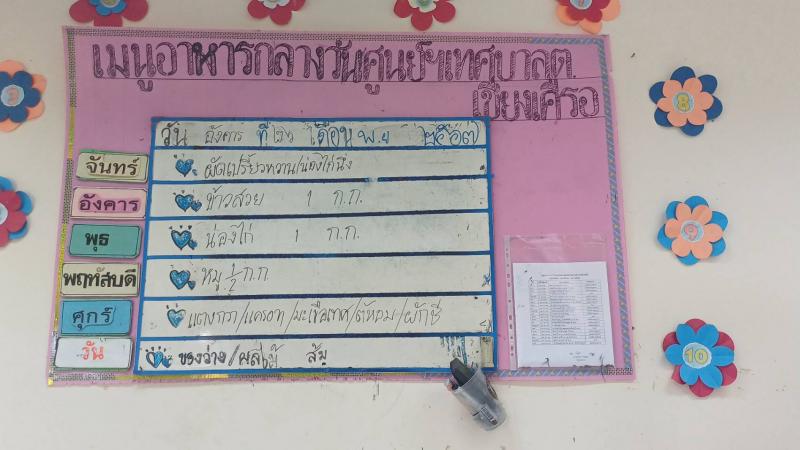 เมนูอาหารกลางวันศูนย์ฯเทศบาลต.
เชียงเครือ
วัน อังคาร ที่ เดือน พ.ย ๒๕๖๗
จันทร์
ผัดเปรี้ยวหวาน/น่องไก่นึ่ง
อังคาร
ข้าวสวย 1 ก.ก.
พุธ
น่องไก่ 1 ก.ก.
พฤหัสบดี
หมู 1/2 ก.ก
ศุกร์
แตงกวา/แครอท/มะเขือเทศ/ต้นหอม/ผักชี
วัน
ของว่าง/ผลไม้ ส้ม
8
9
10